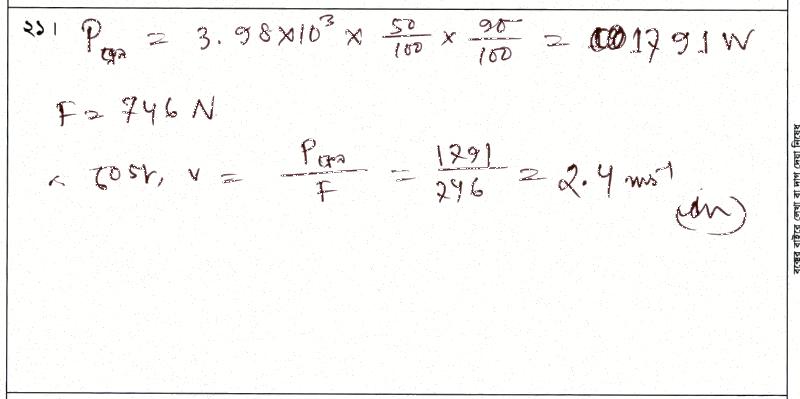 ২১। P = 3.98×10³ × 50/100 × 90/100 = 1791 W
F = 746 N
v = P/F = 1791/746 = 2.4 ms⁻¹
বক্সের বাইরে লেখা বা দাগ দেয়া নিষেধ